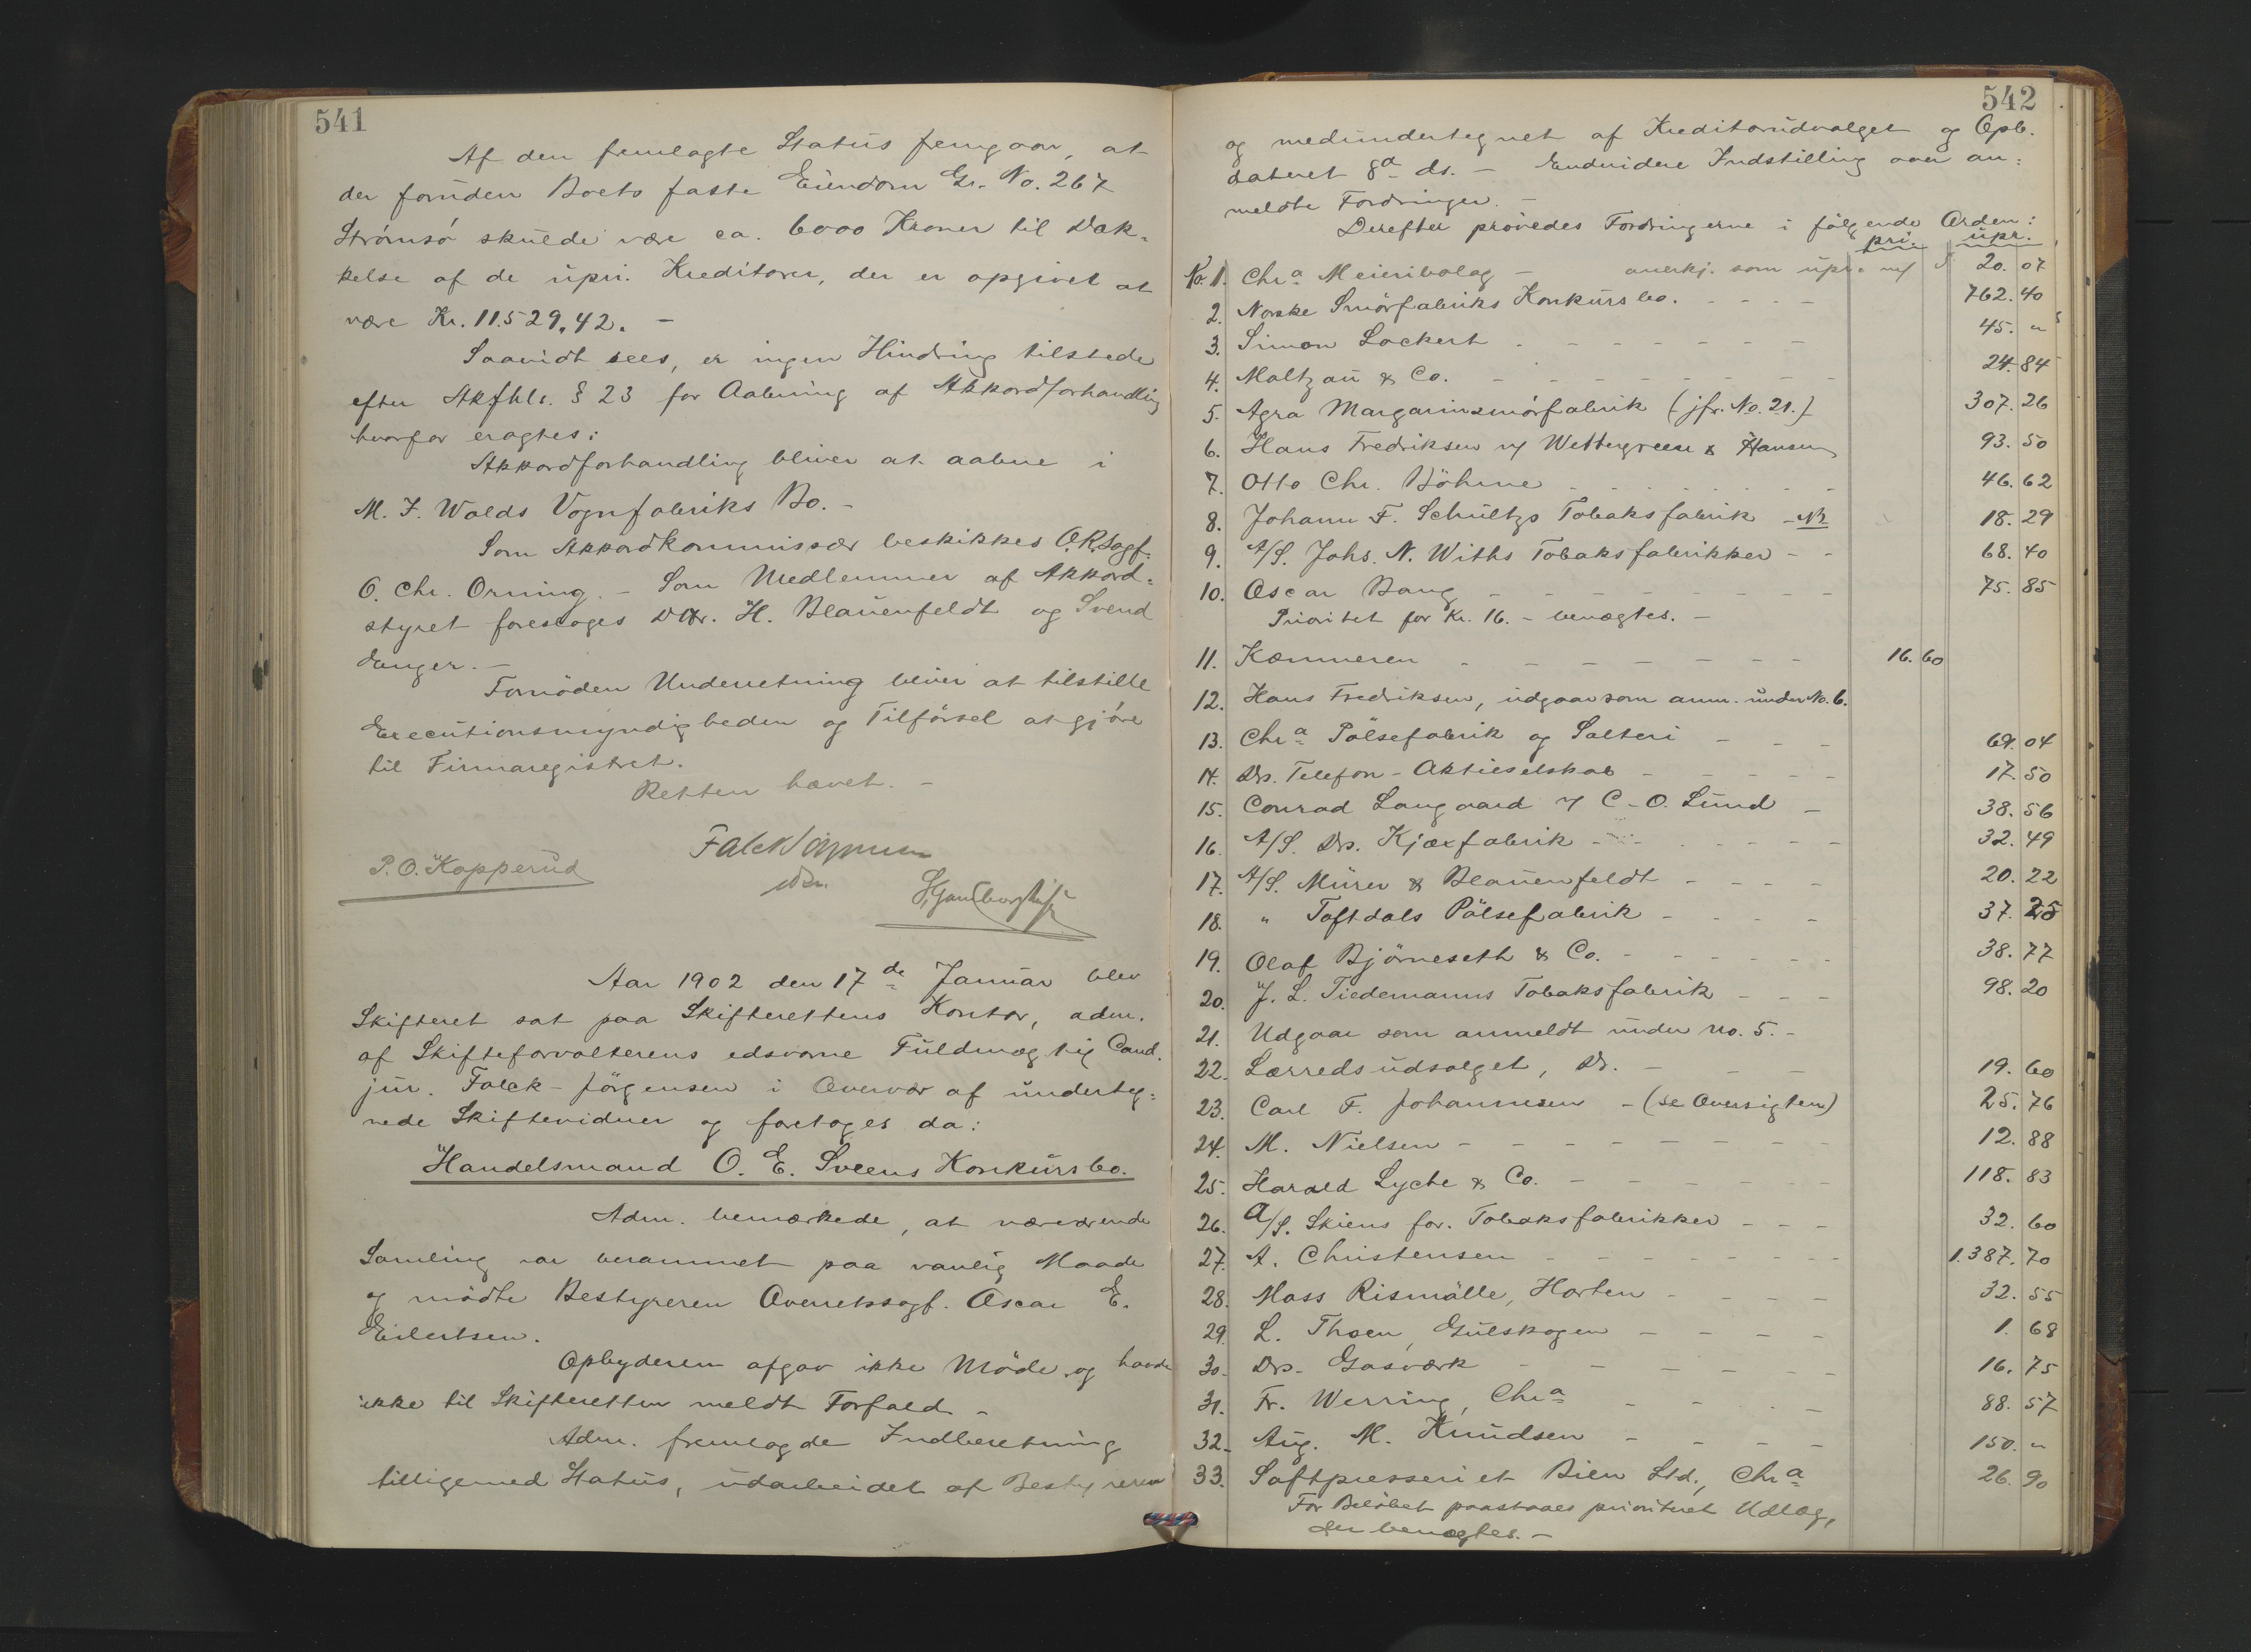 541
Af den fremlagte Status fremgaar, at
der foruden Boets faste Eiendom Gr. No. 267
Strømsö skulde være ca. 6000 Kroner til Dæk-
kelse af de upri. Kreditorer, der er opgivet at
være Kr. 11.529,42. –
Saavidt sees, er ingen Hindring tilstede
efter Akfhls. § 23 for Aabning af Akkordforhandling
hvorfor eragtes:
Akkordforhandling bliver at aabne i
M. F. Walds Vognfabriks Bo. –
Som Akkordkommissær beskikkes O.R.Sagf.
O. Chr. Orning. – Som Medlemmer af Akkord-
styret foresloges DHr. H. Blauenfeldt og Svend
Fornöden Underretning bliver at tilstille
Executionsmyndigheden og Tilförsel at gjöre
til Firmaregistret.
Retten hævet. –
P. O. Kopperud
Aar 1902 den 17de Januar blev
Skifteret sat paa Skifterettens Kontor, adm.
af Skifteforvalterens edsvorne Fuldmægtig Cand.
jur. Falck-Jörgensen i Overvær af underteg-
nede Skiftevidner og foretoges da:
Handelsmand O. E. Sveens Konkursbo.
Adm. bemærkede, at nærværende
Samling var berammet paa vanlig Maade
og mödte Bestyreren Overretssagf. Oscar E.
Eilertsen.
Opbyderen afgav ikke Möde og havde
ikke til Skifteretten meldt Forfald –
Adm. fremlagde Indberetning
tilligemed Status, udarbeidet af Bestyreren
542
og medundertegnet af Kreditorudvalget og Opb.
dateret 8a ds. – Endvidere Indstilling over an-
meldte Fordringer. –
Derefter prövedes Fordringerne i fölgende Orden:
pri. upr.
No. 1. Chra Meieribolag – anerkj. som upr. m/ 20. 07
2. Norske Smörfabriks Konkursbo. - - - - 762. 40
3. Simon Lockert - - - - - - - 45. "
4. Maltzau & Co. - - - - - - - 24. 84
5. Agra Margarinsmörfabrik (jfr. No. 21.) 307. 26
6. Hans Fredriksen v/ Wettergreen & Hansen 93. 50
7. Otto Chr. Böhme - - - - - - - 46. 62
8. Johann F. Schultzs Tobaksfabrik 18. 29
9. A/S. Johs. N. Withs Tobaksfabrikker - - 68. 40
10. Oscar Bang - - - - - - - 75. 85
Prioritet for Kr. 16. – benægtes. –
11. Kæmneren - - - - - - - 16. 60
12. Hans Fredriksen, udgaar som anm. under No. 6.
13. Chra Pölsefabrik og Salteri - - - 69. 04
14. Drs. Telefon-Aktieselskab - - - - - 17. 50
15. Conrad Langaard v/ C. O. Lund - 38. 56
16. A/S. Drs. Kjæxfabrik - - - - - - 32. 49
17. A/S. Mürer & Blauenfeldt - - - - 20. 22
18. " Toftdals Pölsefabrik - - - - 37. 25
19. Olaf Björneseth & Co. - - - - - - 38. 77
20. J. L. Tiedemanns Tobaksfabrik - - - 98. 20
21. Udgaar som anmeldt under No. 5. –
22. Lærredsudsalget, Dr. - - - 19. 60
23. Carl F. Johannesen - (se Oversigten) 25. 76
24. M. Nielsen - - - - - - - - 12. 88
25. Harald Lyche & Co. - - - - - - 118. 83
26. A/S. Skiens for. Tobaksfabrikker - - - 32. 60
27. A. Christensen - - - - - - - - 1.387. 70
28. Moss Rismölle, Horten - - - - 32. 55
29. L. Thoen, Gulskogen - - - - 1. 68
30. Drs. Gasværk - - - - - - 16. 75
31. Fr. Werring, Chra - - - - 88. 57
32. Aug. M. Knudsen - - - - 150. "
33. Saftpresseriet Bien Ltd., Chra 26. 90
For Belöbet paastaaes prioriteret Udlæg,
der benægtes. –